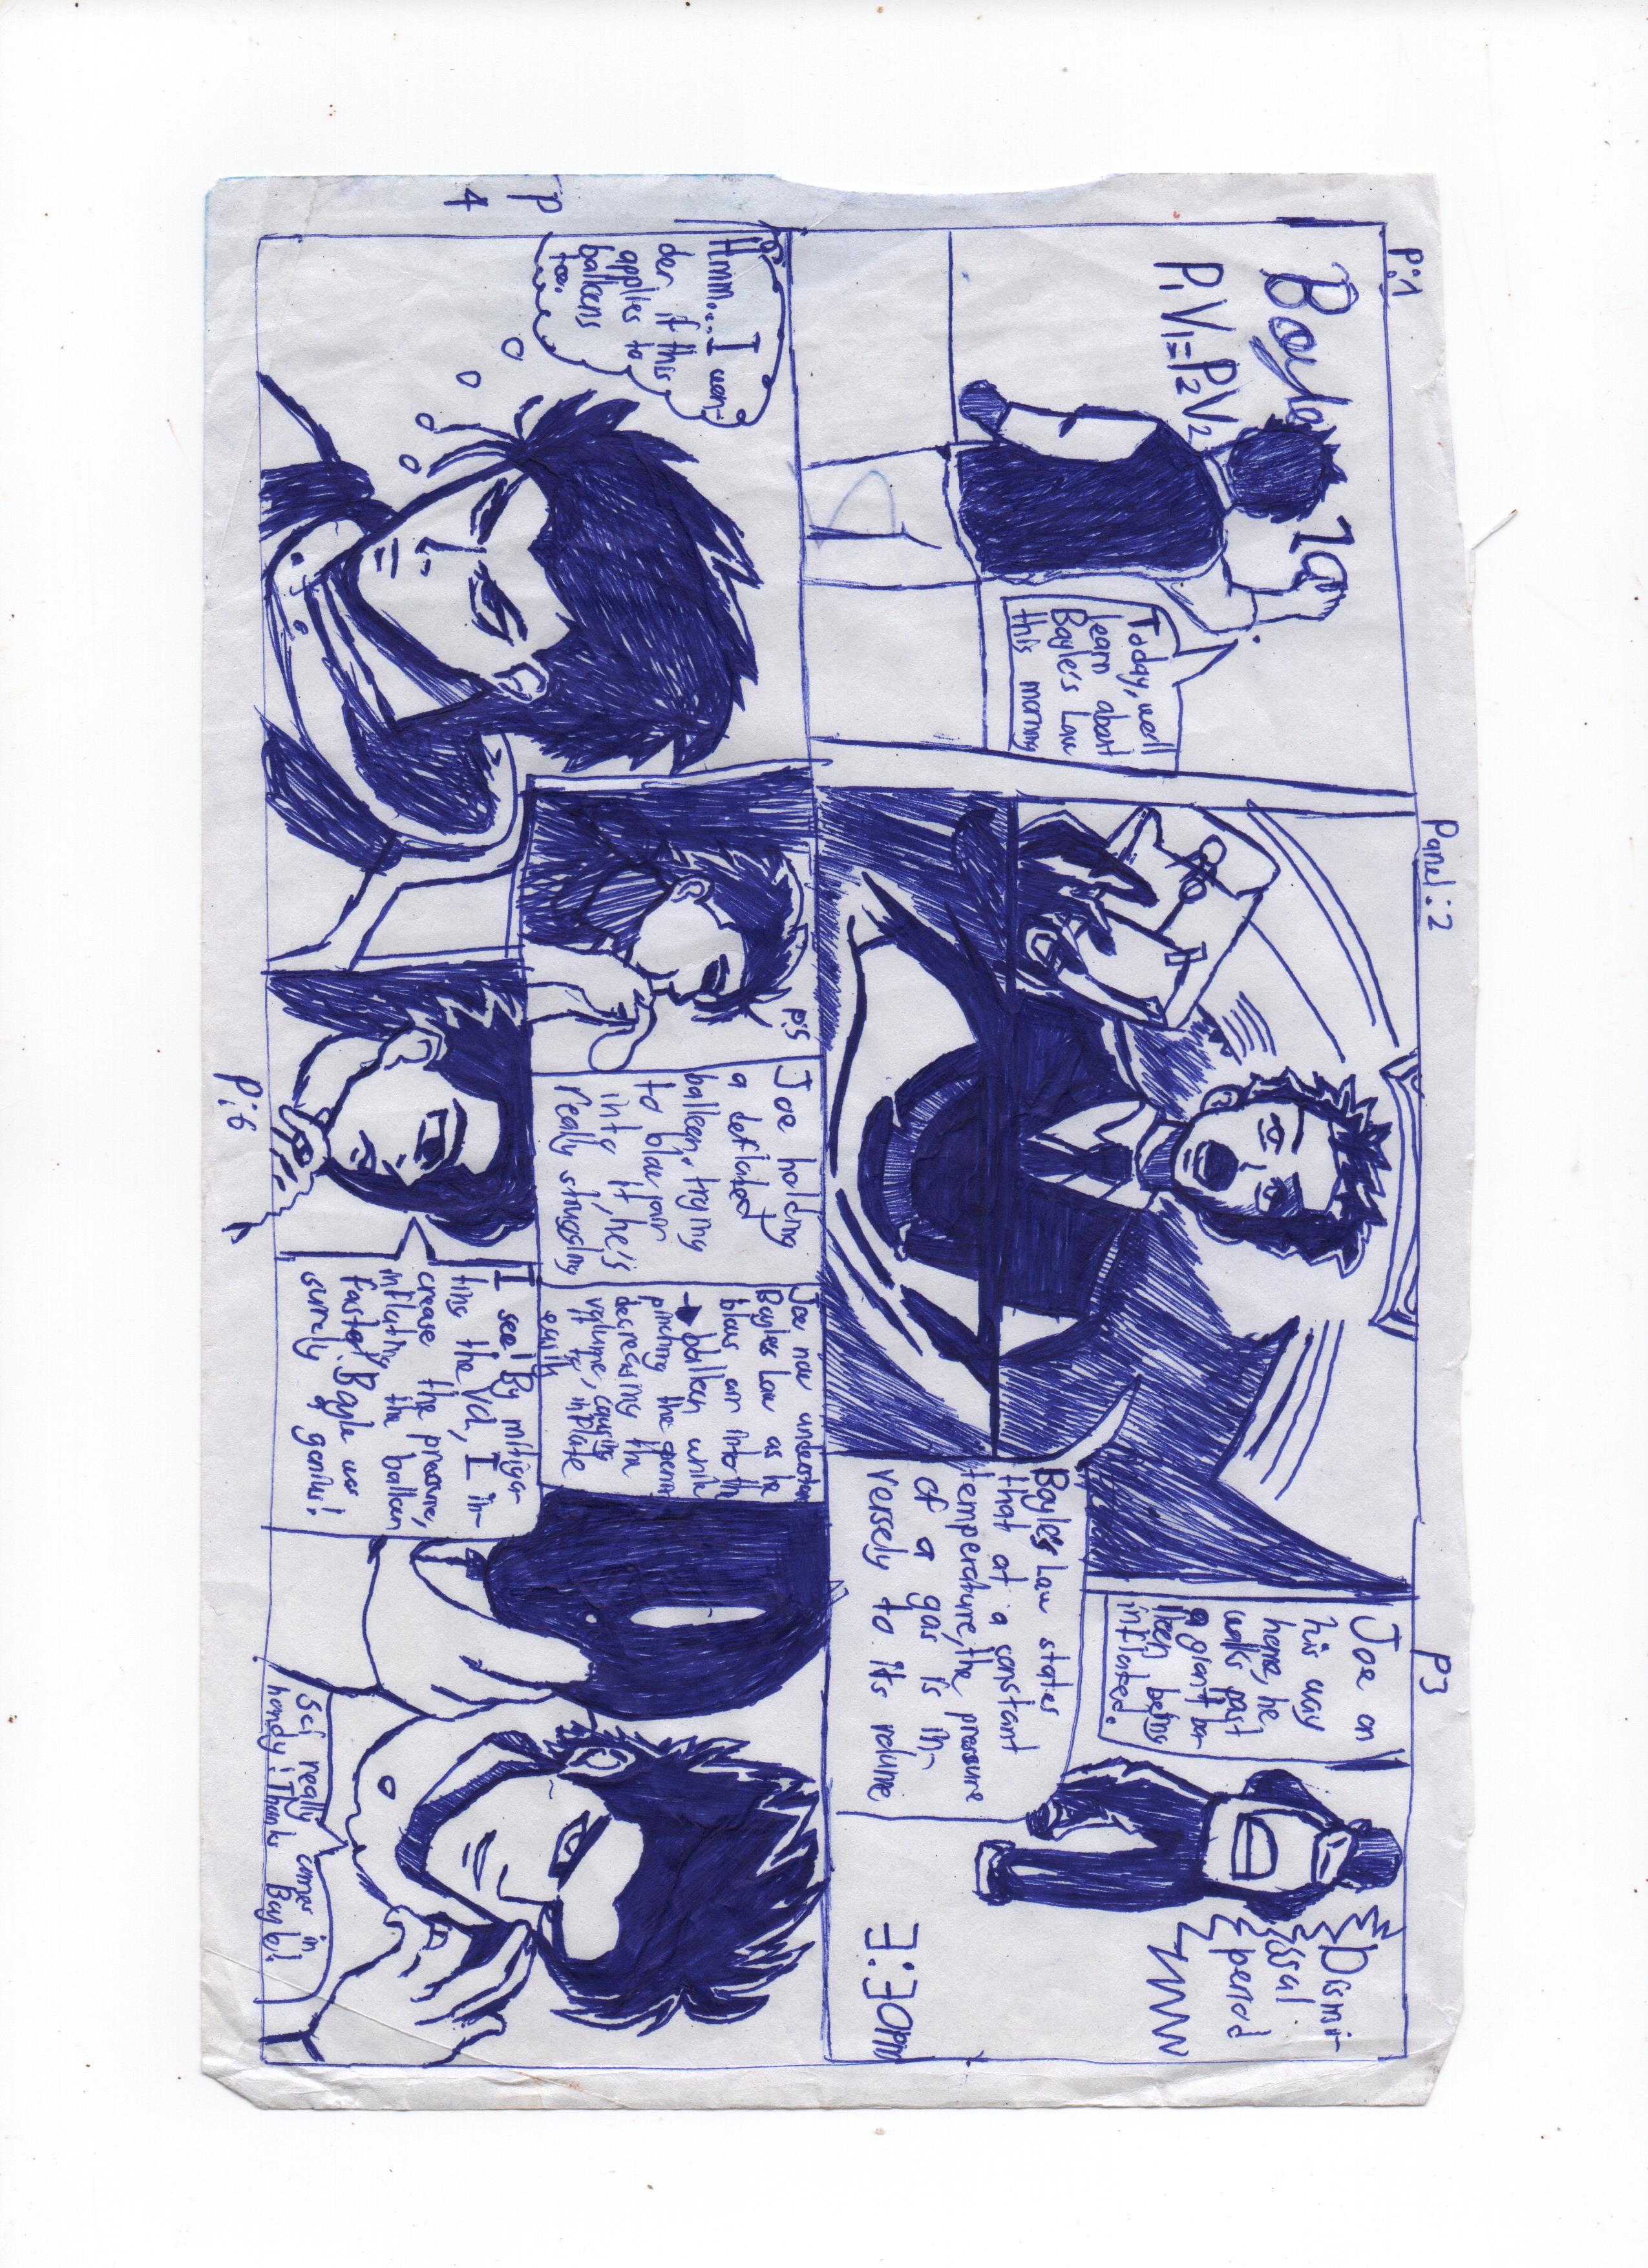 P:1
Boyle
la
P₁V₁=P₂V₂
Today, we'll
learn about
Boyle's Law
this morning
Panel:2
Boyle's Law states
that at a constant
temperature, the pressure
of a gas is in-
versely to its volume
P3
Joe on
his way
home, he
walks past
a giant ba-
lloon being
inflated.
Dismi-
ssal
period
3:30pm
P
4
Hmm... I won-
der if this
applies to
balloons
too.
P:5
Joe holding
a deflated
balloon. trying
to blow air
into it, he's
really struggling
Joe now understan
Boyles Law as he
blows air into the
balloon while
pinching the
decreasing the
volume, causing
it to inflate
easily
P:6
I see! By mitiga-
ting the Vol, I in-
crease the pressure,
inflating the balloon
faster. Boyle was
surely a genius!
Sci really comes in
handy! Thanks Boyle!